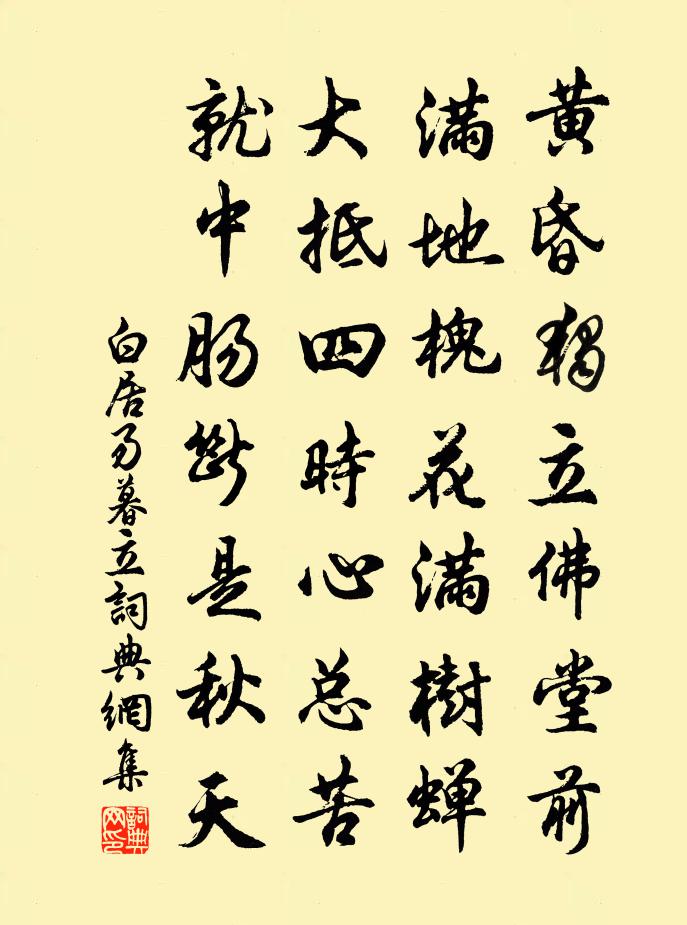 黃昏獨立佛堂前
滿地槐花滿樹蟬
大抵四時心总苦
就中腸斷是秋天
白居易暮立詞典網集
詞典网印